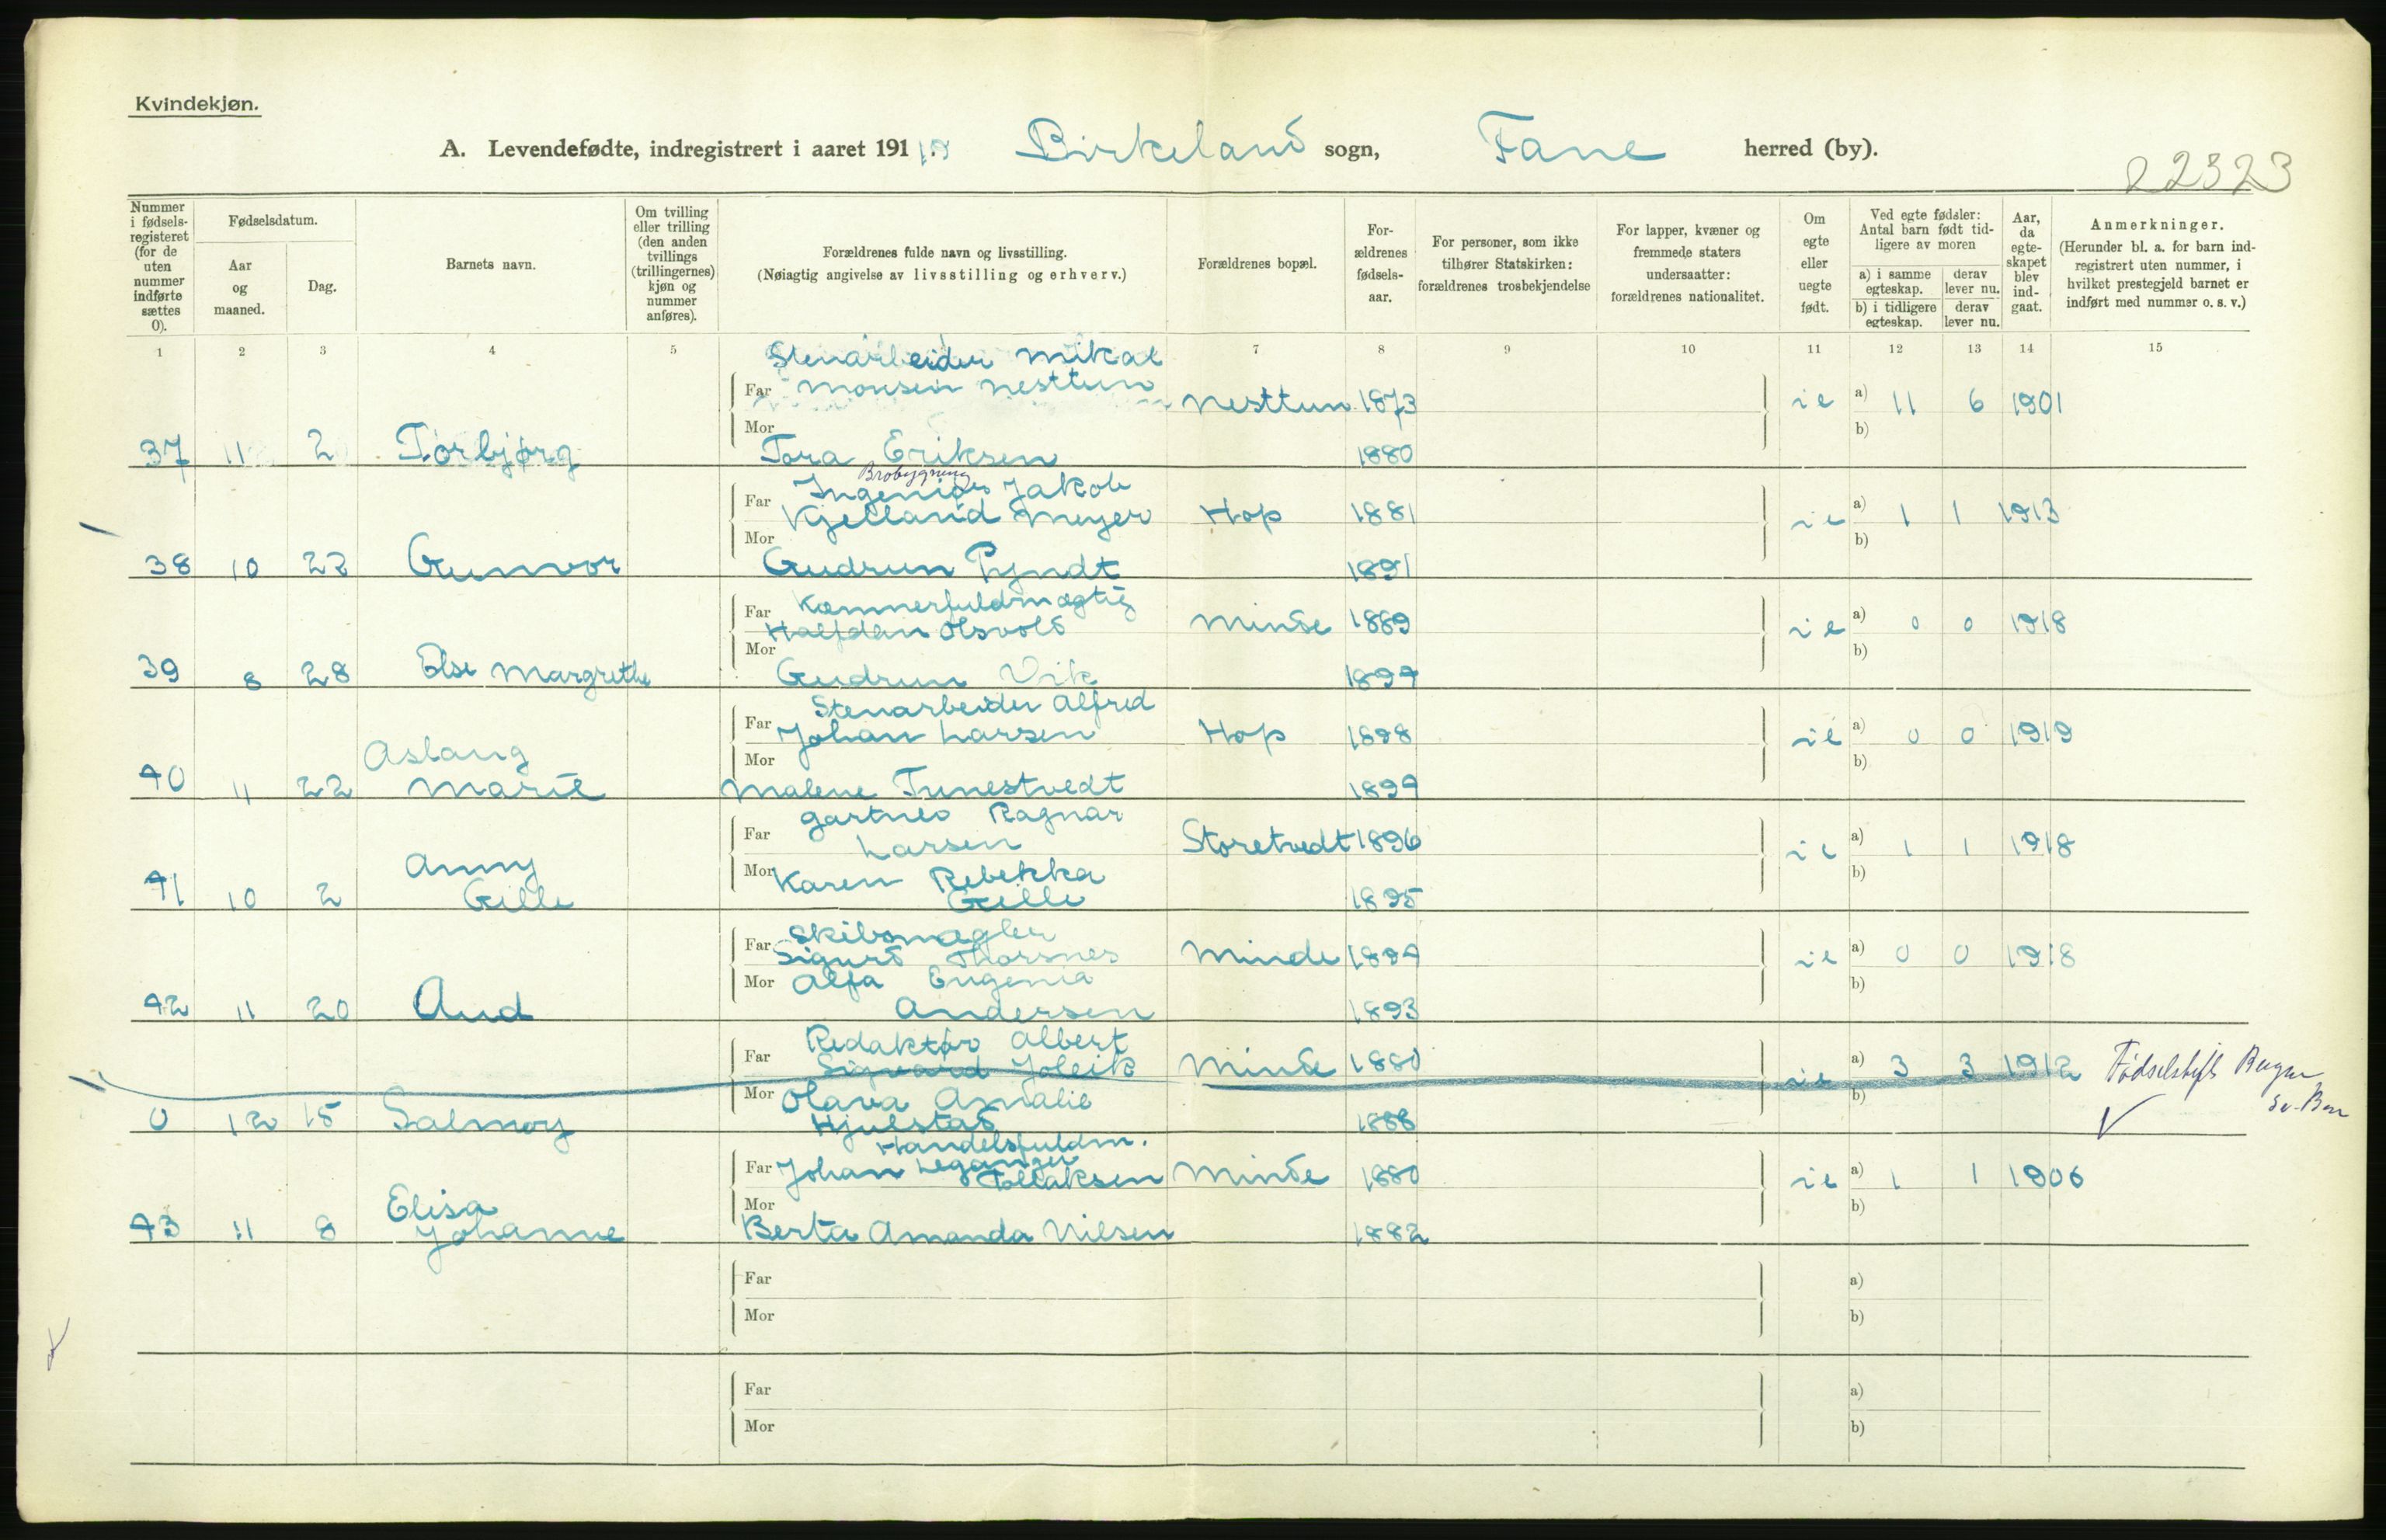 Kvindekjøn.
A. Levendefødte, indregistrert i aaret 1919. Birkeland sogn, Fane herred (by).
22323
Nummer i fødsels-registeret (for de uten nummer indførte sættes 0).
Fødselsdatum.
Aar og maaned.
Dag.
Barnets navn.
Om tvilling eller trilling (den anden tvillings (trillingernes) kjøn og nummer anføres).
Forældrenes fulde navn og livsstilling.
(Nøiagtig angivelse av livsstilling og erhverv.)
Forældrenes bopæl.
For-ældrenes fødsels-aar.
For personer, som ikke tilhører Statskirken: forældrenes trosbekjendelse
For lapper, kvæner og fremmede staters undersaatter: forældrenes nationalitet.
Om egte eller uegte født.
Ved egte fødsler: Antal barn født tid-ligere av moren
a) i samme egteskap.
derav lever nu.
b) i tidligere egteskap.
derav lever nu.
Aar, da egte-skapet blev ind-gaat.
Anmerkninger.
(Herunder bl. a. for barn ind-registrert uten nummer, i hvilket prestegjeld barnet er indført med nummer o. s. v.)
1 2 3 4 5 7 8 9 10 11 12 13 14 15
Stenarbeider Mikal
Far Monsen Nesttun Nesttun 1873 ie a) 11 6 1901
Mor b)
37 11 2 Torbjørg Tora Eriksen 1880
Brobygning
Ingeniør Jakob
Far Kjelland Meyer Hop 1881 ie a) 1 1 1913
Mor b)
38 10 22 Gunvor Gudrun Pyndt 1891
Far Kæmnerfuldmægtig
Halfdan Olsvold Minde 1889 ie a) 0 0 1918
Mor b)
39 8 28 Else Margrethe Gudrun Vik 1894
Stenarbeider Alfred
Far Johan Larsen Hop 1898 ie a) 0 0 1919
Mor b)
40 11 22 Aslaug Marie Malene Tunestvedt 1899
gartner Ragnar
Far Larsen Storetvedt 1896 ie a) 1 1 1918
Mor Karen Rebekka b)
41 10 2 Anny Gille Gille 1895
Far Skibsmægler
Sigurd Thorsnes Minde 1894 ie a) 0 0 1918
Mor Alfa Eugenia b)
42 11 20 Aud Andersen 1893
Redaktør Albert
Far Sigvard Joleik Minde 1880 ie a) 3 3 1912 Fødselstift Bergen
Mor Olava Amalie b)
0 12 15 Salmoy Hjulstad 1888
Handelsfuldm.
Far Johan Leganger
Tollaksen Minde 1880 ie a) 1 1 1906
Mor b)
43 11 8 Elisa Johanne Berta Amanda Nilsen 1882
Far a)
Mor b)
Far a)
Mor b)